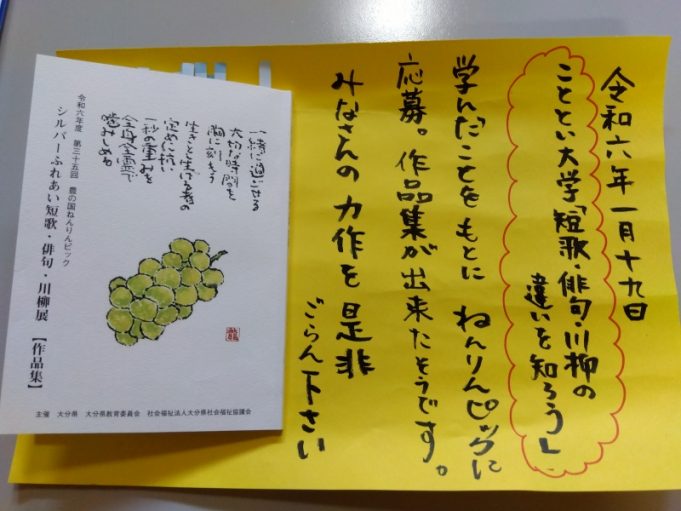 令和六年一月十九日
こととい大学「短歌・俳句・川柳の
違いを知ろう」
学んだことをもとに ねんりんピックに
応募。作品集が出来たそうです。
みなさんの力作を是非
ごらん下さい
一緒に過ごせる
大切な時間を
胸に刻もう
生きとし生ける者の
定めに抗い
一秒の重みを
全身全霊で
噛みしめる
令和六年度 第三十五回 豊の国ねんりんピック
シルバーふれあい短歌・俳句・川柳展 【作品集】
主催 大分県 大分県教育委員会 社会福祉法人大分県社会福祉協議会